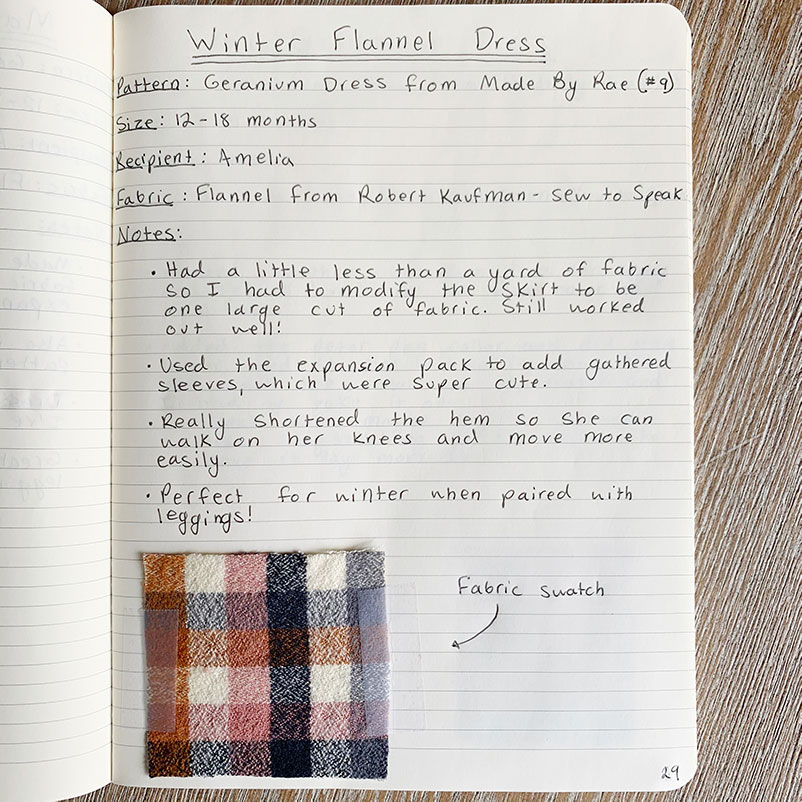 Winter Flannel Dress
Pattern: Geranium Dress from Made By Rae (#9)
Size: 12-18 months
Recipient: Amelia
Fabric: Flannel from Robert Kaufman - Sew to Speak
Notes:
• Had a little less than a yard of fabric
so I had to modify the skirt to be
one large cut of fabric. Still worked
out well!
• Used the expansion pack to add gathered
sleeves, which were super cute.
• Really shortened the hem so she can
walk on her knees and move more
easily.
• Perfect for winter when paired with
leggings!
Fabric swatch
29